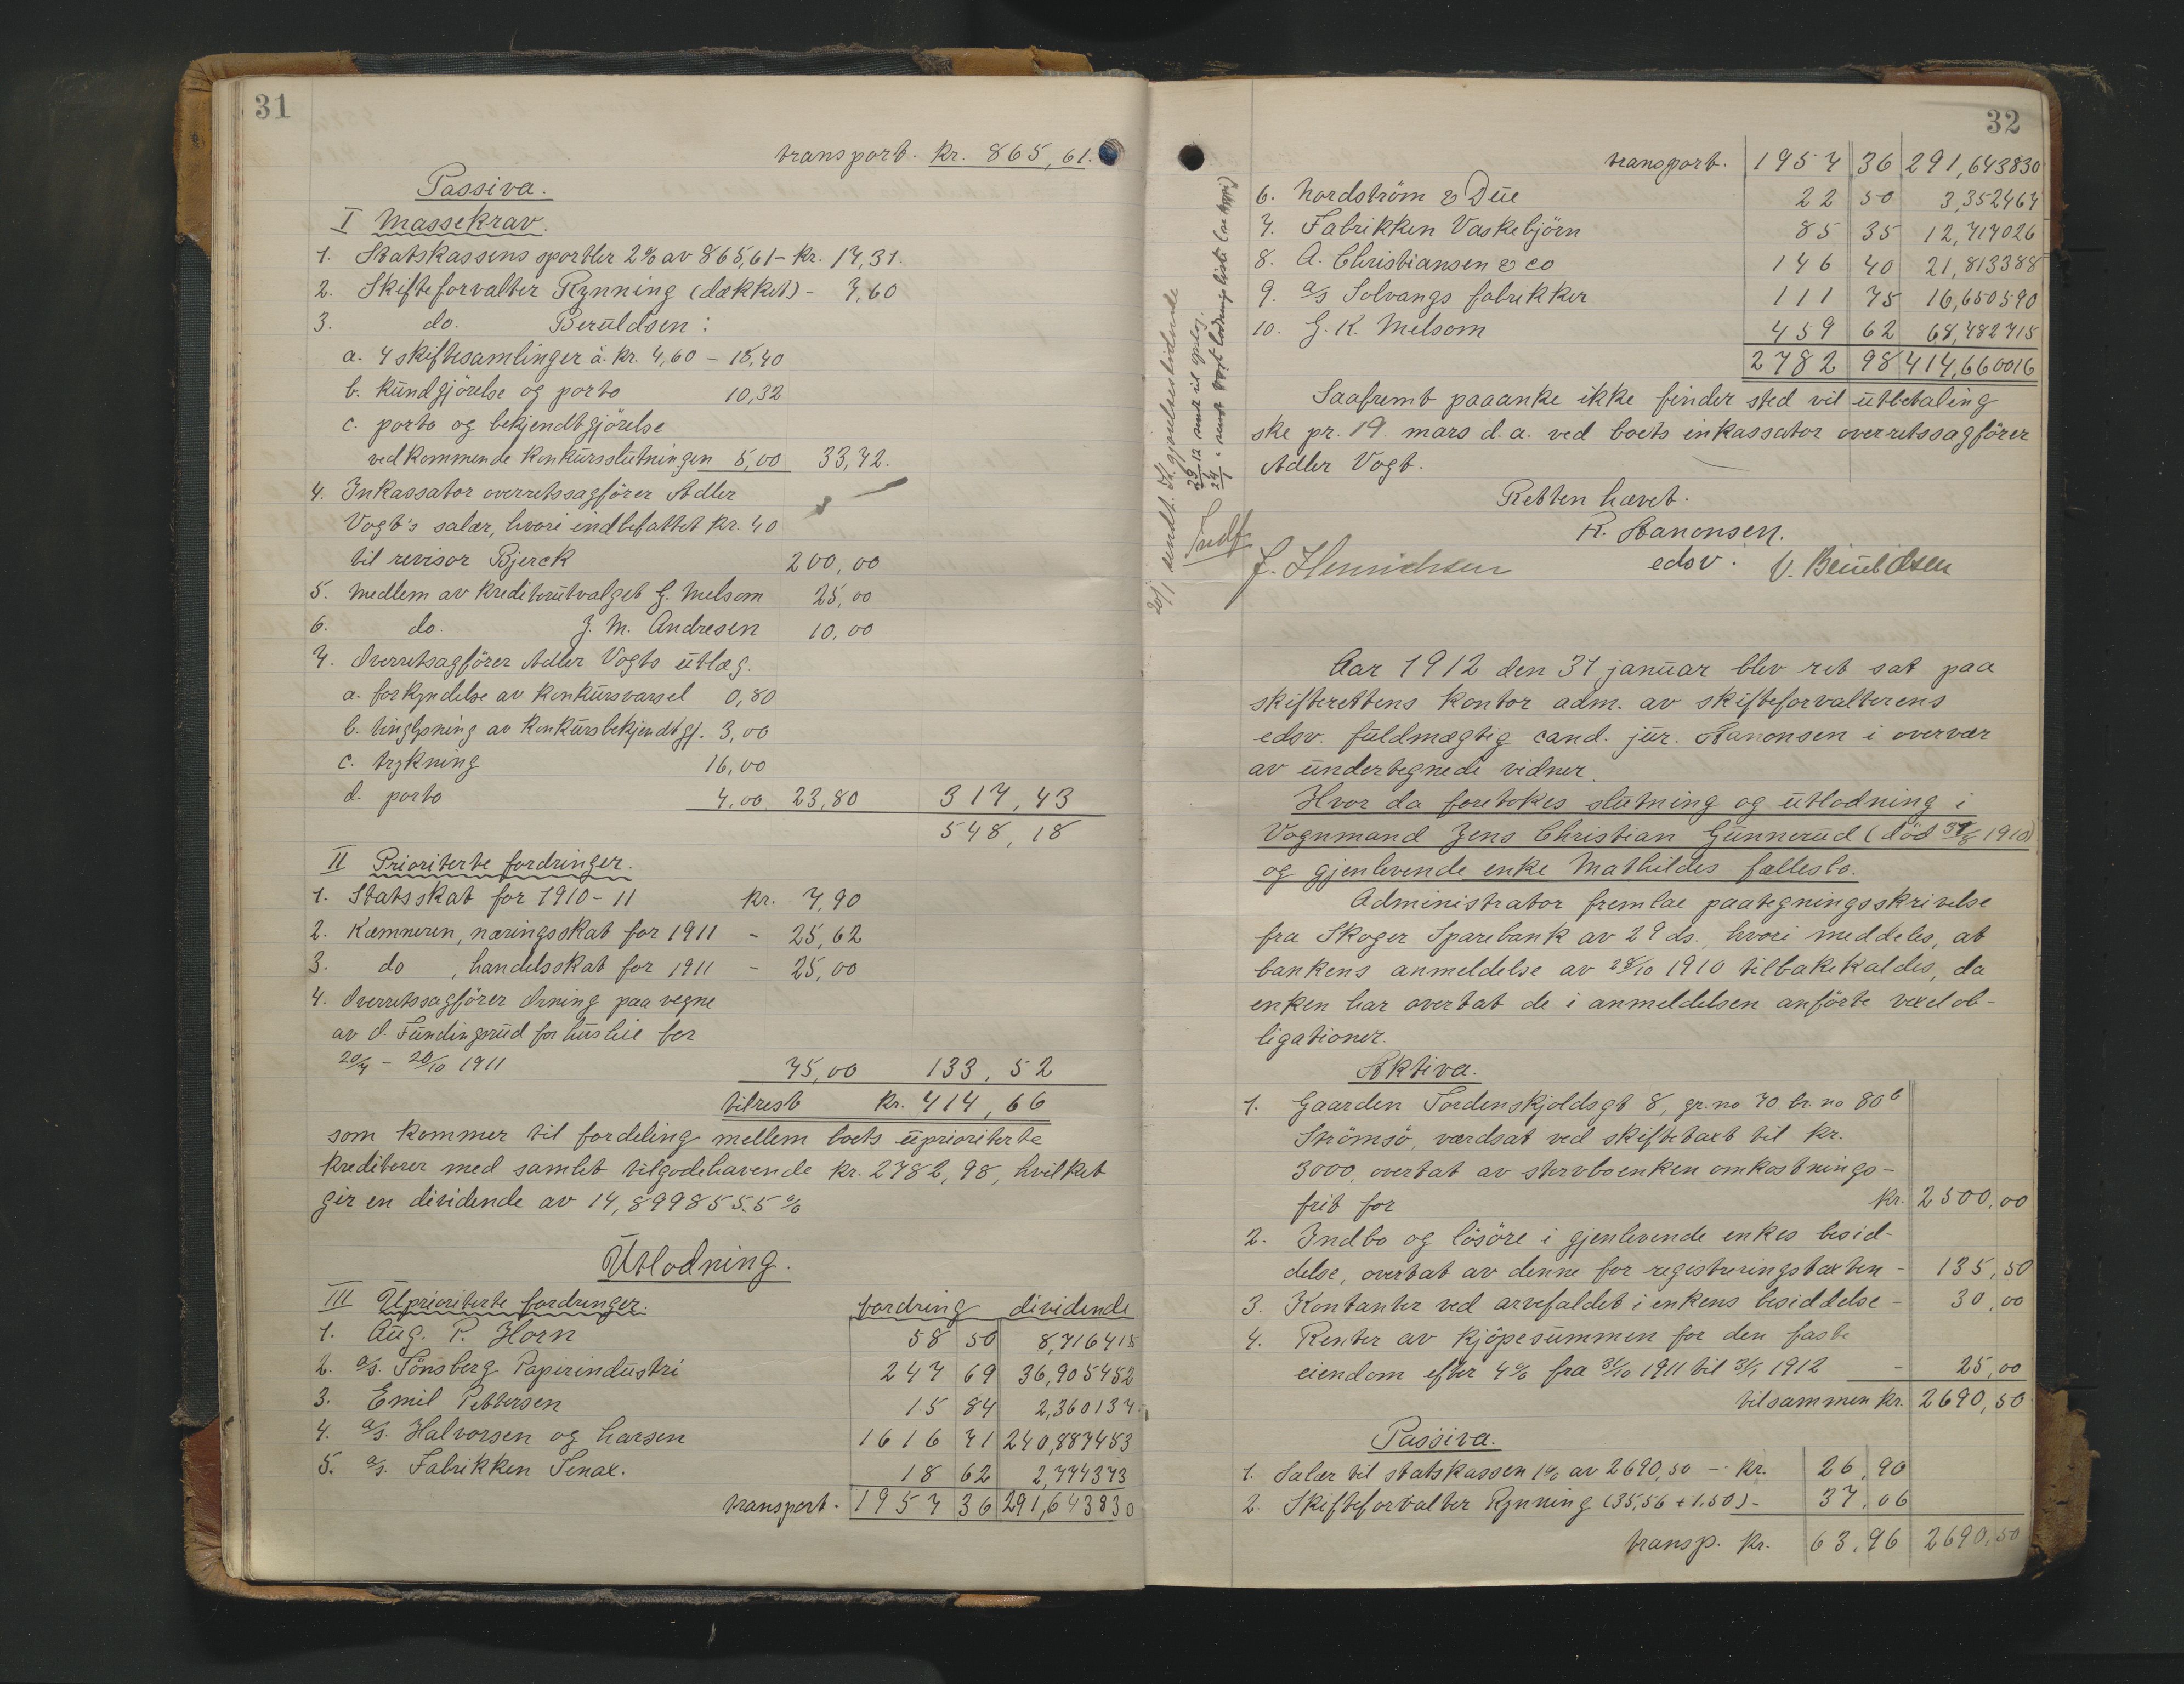 31
transport. Kr. 865,61.
Passiva.
I Massekrav.
1. Statskassens sportler 2% av 865,61 - Kr. 17,31.
2. Skifteforvalter Rynning (dækket) - 7,60
3. do. Beruldsen:
a. 4 skiftesamlinger à kr. 4,60 - 18,40
b. Kundgjörelse og porto 10,32
c. porto og bekjendtgjörelse
vedkommende konkursslutningen 5,00 33,72.
4. Inkassator overretssagförer Adler
Vogt's salær, hvori indbefattet Kr. 40
til revisor Bjerck 200,00
5. Medlem av kreditorutvalget G. Melsom 25,00
6. do. J. M. Andresen 10,00
7. Overretsagförer Adler Vogts utlæg.
a. forkyndelse av konkursvarsel 0,80
b. tinglysning av konkursbekjendtgj. 3,00
c. trykning 16,00
d. porto 4,00 23,80 317,43
548,18
II Prioriterte fordringer.
1. Statsskat for 1910-11 kr. 7,90
2. Kæmneren, næringsskat for 1911 - 25,62
3. do , handelsskat for 1911 - 25,00
4. Overretssagförer Orning paa vegne
av O. Fundingsrud for husleie for
20/7 - 20/10 1911 75,00 133,52
tilrest Kr. 414,66
som kommer til fordeling mellem boets uprioriterte
kreditorer med samlet tilgodehavende kr. 2782,98, hvilket
gir en dividende av 14,8998555 %
Utlodning.
III Uprioriterte fordringer. fordring dividende
1. Aug. P. Horn 58 50 8,716415
2. a/s. Tönsberg Papirindustri 247 69 36,905452
3. Emil Pettersen 15 84 2,360137
4. a/s. Halvorsen og Larsen 1616 71 240,887453
5. a/s. Fabrikken Tenax. 18 62 2,774373
transport. 1957 36 291,643830
32
transport. 1957 36 291,643830
6. Nordström & Due 22 50 3,352467
7. Fabrikken Vaskebjörn 85 35 12,717026
8. A. Christiansen & co 146 40 21,813388
9. a/s Solvangs fabrikker 111 75 16,650590
10. G. K. Melsom 459 62 68,482715
2782 98 414,660016
Saafremt paaanke ikke finder sted vil utbetaling
ske pr. 19. mars d.a. ved boets inkassator overretssagförer
Adler Vogt.
Retten hævet.
R. Aanonsen.
edsv.
J. Henrichsen V. Beruldsen
Aar 1912 den 31 januar blev ret sat paa
skifterettens kontor adm. av skifteforvalterens
edsv. fuldmægtig cand. jur. Aanonsen i overvær
av undertegnede vidner.
Hvor da foretokes slutning og utlodning i
Vognmand Jens Christian Gunnerud (död 1910)
og gjenlevende enke Mathildes fællesbo.
Administrator fremlae paategningsskrivelse
fra Skoger Sparebank av 29 ds., hvori meddeles, at
bankens anmeldelse av 28/10 1910 tilbakekaldes, da
enken har overtat de i anmeldelsen anförte vexelob-
ligationer.
Aktiva.
1. Gaarden Tordenskjoldsgt 8, gr. no 70 br. no 80b
Strömsö, værdsat ved skiftetaxt til kr.
3000, overtat av stervboenken omkostnings-
frit for kr. 2500,00
2. Indbo og lösöre i gjenlevende enkes besid-
delse, overtat av denne for registreringstaxten - 135,50
3. Kontanter ved arvefaldet i enkens besiddelse - 30,00
4. Renter av kjöpesummen for den faste
eiendom efter 4% fra 31/10 1911 til 31/1 1912 - 25,00
tilsammen kr. 2690,50
Passiva.
1. Salær til statskassen 1% av 2690,50 - kr. 26,90
2. Skifteforvalter Rynning (35,56 + 1,50) - 37,06
transp. kr. 63,96 2690,50